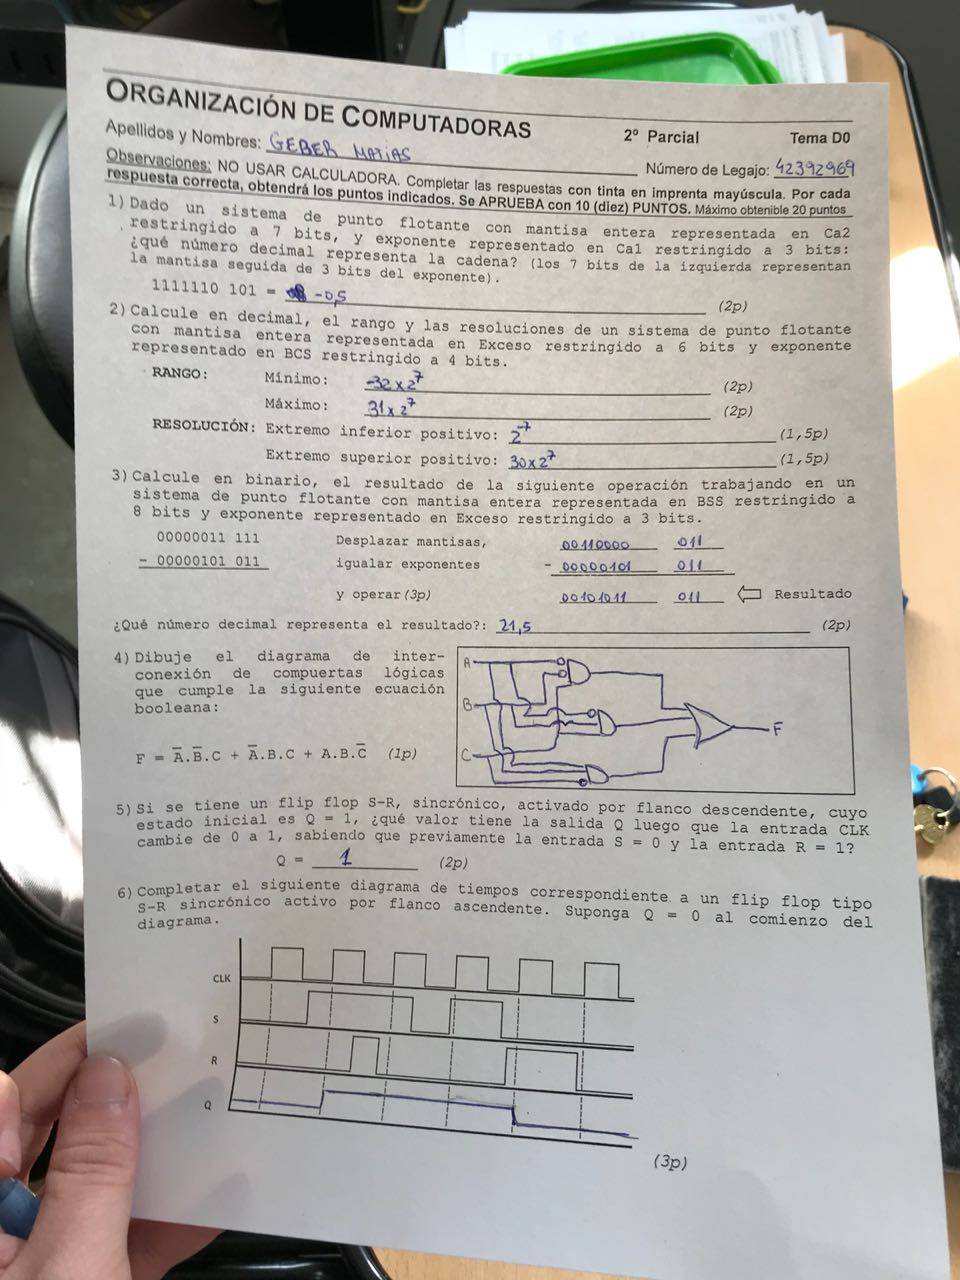 ORGANIZACIÓN DE COMPUTADORAS
2º Parcial Tema D0
Apellidos y Nombres: GEBER MATIAS Número de Legajo: 42392969
Observaciones: NO USAR CALCULADORA. Completar las respuestas con tinta en imprenta mayúscula. Por cada
respuesta correcta, obtendrá los puntos indicados. Se APRUEBA con 10 (diez) PUNTOS. Máximo obtenible 20 puntos
1) Dado un sistema de punto flotante con mantisa entera representada en Ca2
restringido a 7 bits, y exponente representado en Ca1 restringido a 3 bits:
¿qué número decimal representa la cadena? (los 7 bits de la izquierda representan
la mantisa seguida de 3 bits del exponente).
1111110 101 = -0,5 (2p)
2) Calcule en decimal, el rango y las resoluciones de un sistema de punto flotante
con mantisa entera representada en Exceso restringido a 6 bits y exponente
representado en BCS restringido a 4 bits.
RANGO: Mínimo: -32x2^7 (2p)
Máximo: 31x2^7 (2p)
RESOLUCIÓN: Extremo inferior positivo: 2^-7 (1,5p)
Extremo superior positivo: 30x2^7 (1,5p)
3) Calcule en binario, el resultado de la siguiente operación trabajando en un
sistema de punto flotante con mantisa entera representada en BSS restringido a
8 bits y exponente representado en Exceso restringido a 3 bits.
00000011 111 Desplazar mantisas, 00110000 011
- 00000101 011 igualar exponentes - 00000101 011
y operar (3p) 00101011 011 Resultado
¿Qué número decimal representa el resultado?: 21,5 (2p)
4) Dibuje el diagrama de inter-
conexión de compuertas lógicas
que cumple la siguiente ecuación
booleana:
F = A̅.B̅.C + A̅.B.C + A.B.C̅ (1p)
A
B
C
F
5) Si se tiene un flip flop S-R, sincrónico, activado por flanco descendente, cuyo
estado inicial es Q = 1, ¿qué valor tiene la salida Q luego que la entrada CLK
cambie de 0 a 1, sabiendo que previamente la entrada S = 0 y la entrada R = 1?
Q = 1 (2p)
6) Completar el siguiente diagrama de tiempos correspondiente a un flip flop tipo
S-R sincrónico activo por flanco ascendente. Suponga Q = 0 al comienzo del
diagrama.
CLK
S
R
Q
(3p)